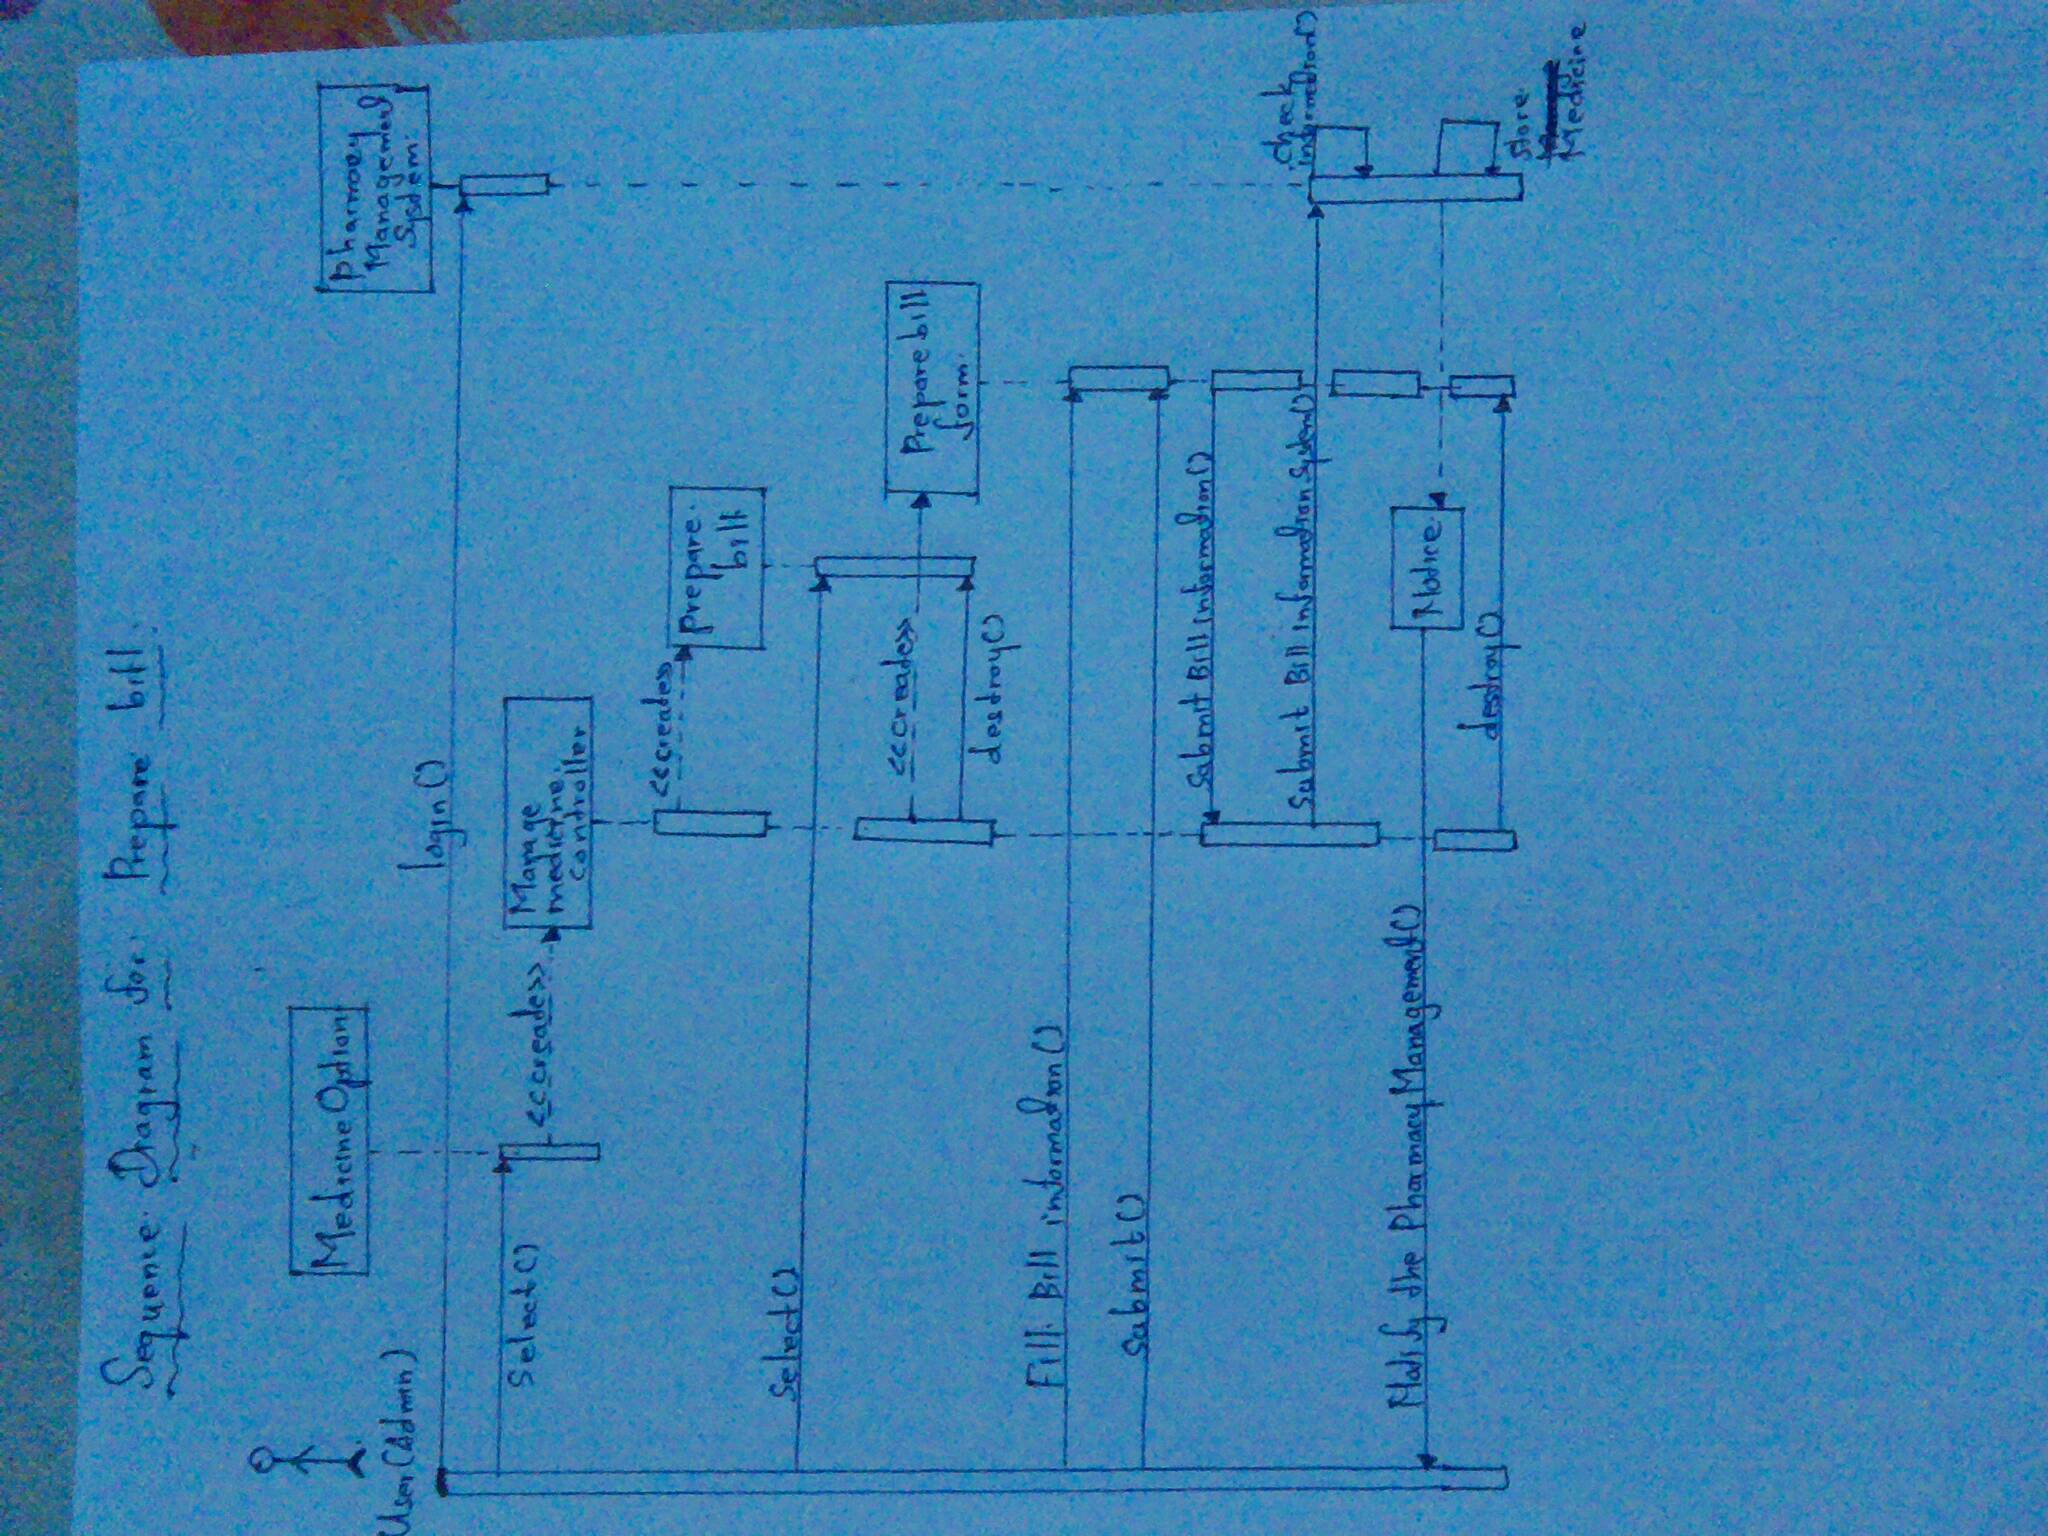 Sequence Diagram for Prepare bill.
Medicine Option
Pharmacy
Management
System.
User (Admin)
login ()
Select ()
<<create>>
Manage
medicine
controller
<<create>>
Prepare
bill
Select ()
<<create>>
Prepare bill
form
destroy ()
Fill Bill information ()
Submit ()
Submit Bill information ()
Submit Bill information System ()
check
information ()
Notify the Pharmacy Management ()
Notice
destroy ()
Store
Medicine